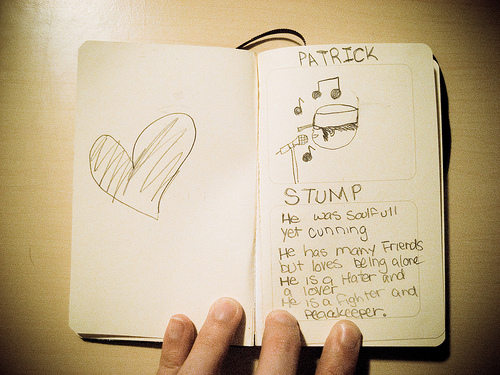 PATRICK
STUMP
He was Soulfull
yet cunning
He has many Friends
but loves being alone
He is a Hater and
a lover
He is a fighter and
peacekeeper.